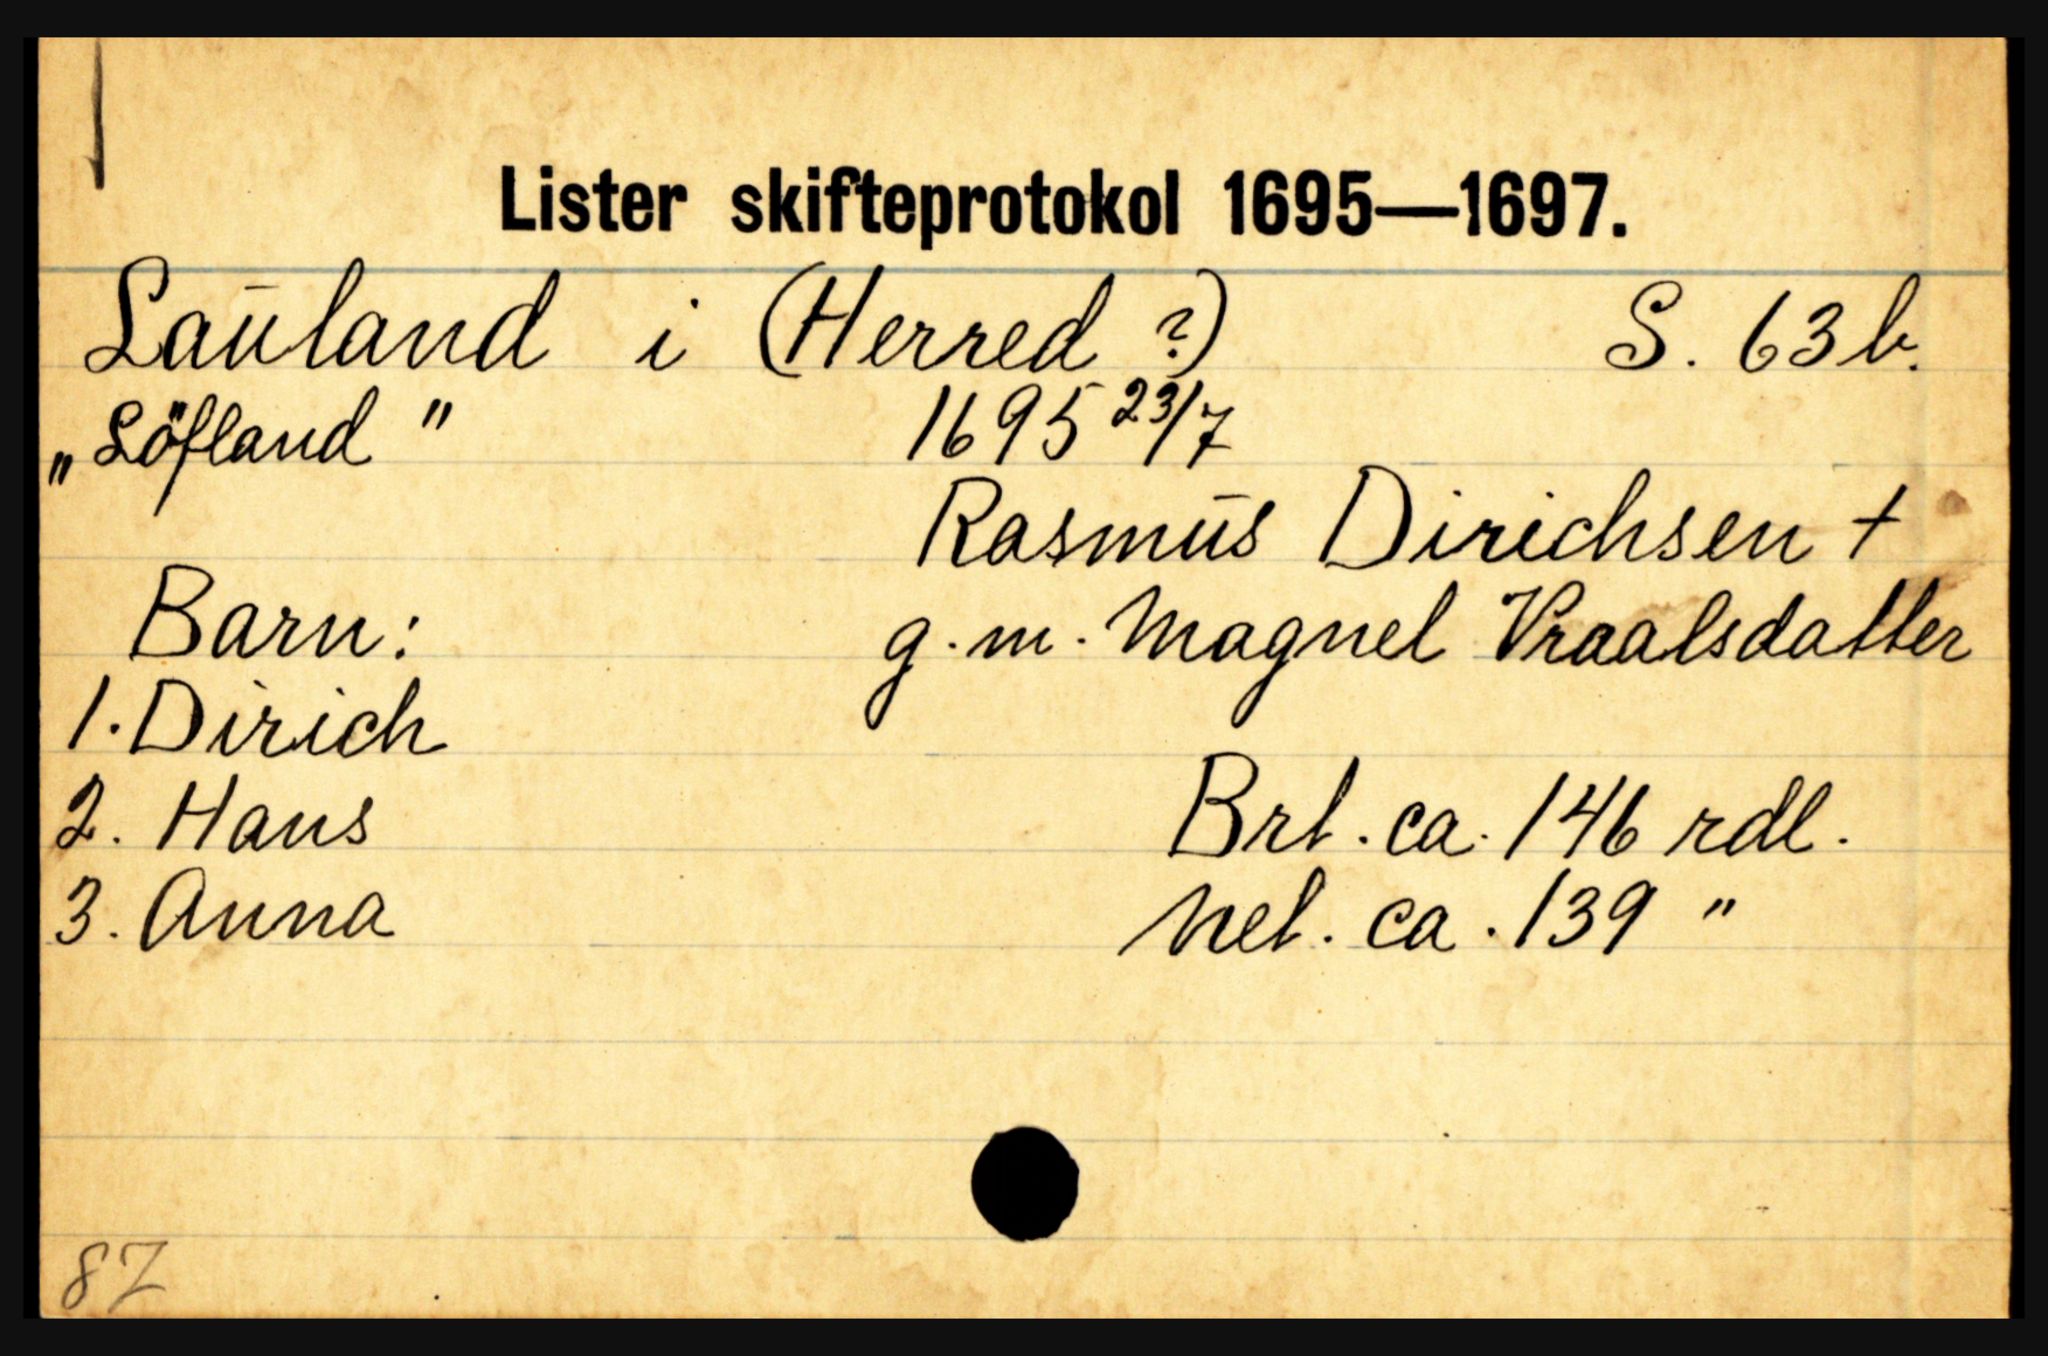 Lister skifteprotokol 1695—1697.
Lauland i (Herred ?) S. 63 b.
„Löfland" 1695 23/7
Rasmus Dirichsen +
Barn: g. m. Magnel Vraalsdatter
1. Dirich
2. Hans Brt. ca. 146 rdl.
3. Anna Net. ca. 139 "
87